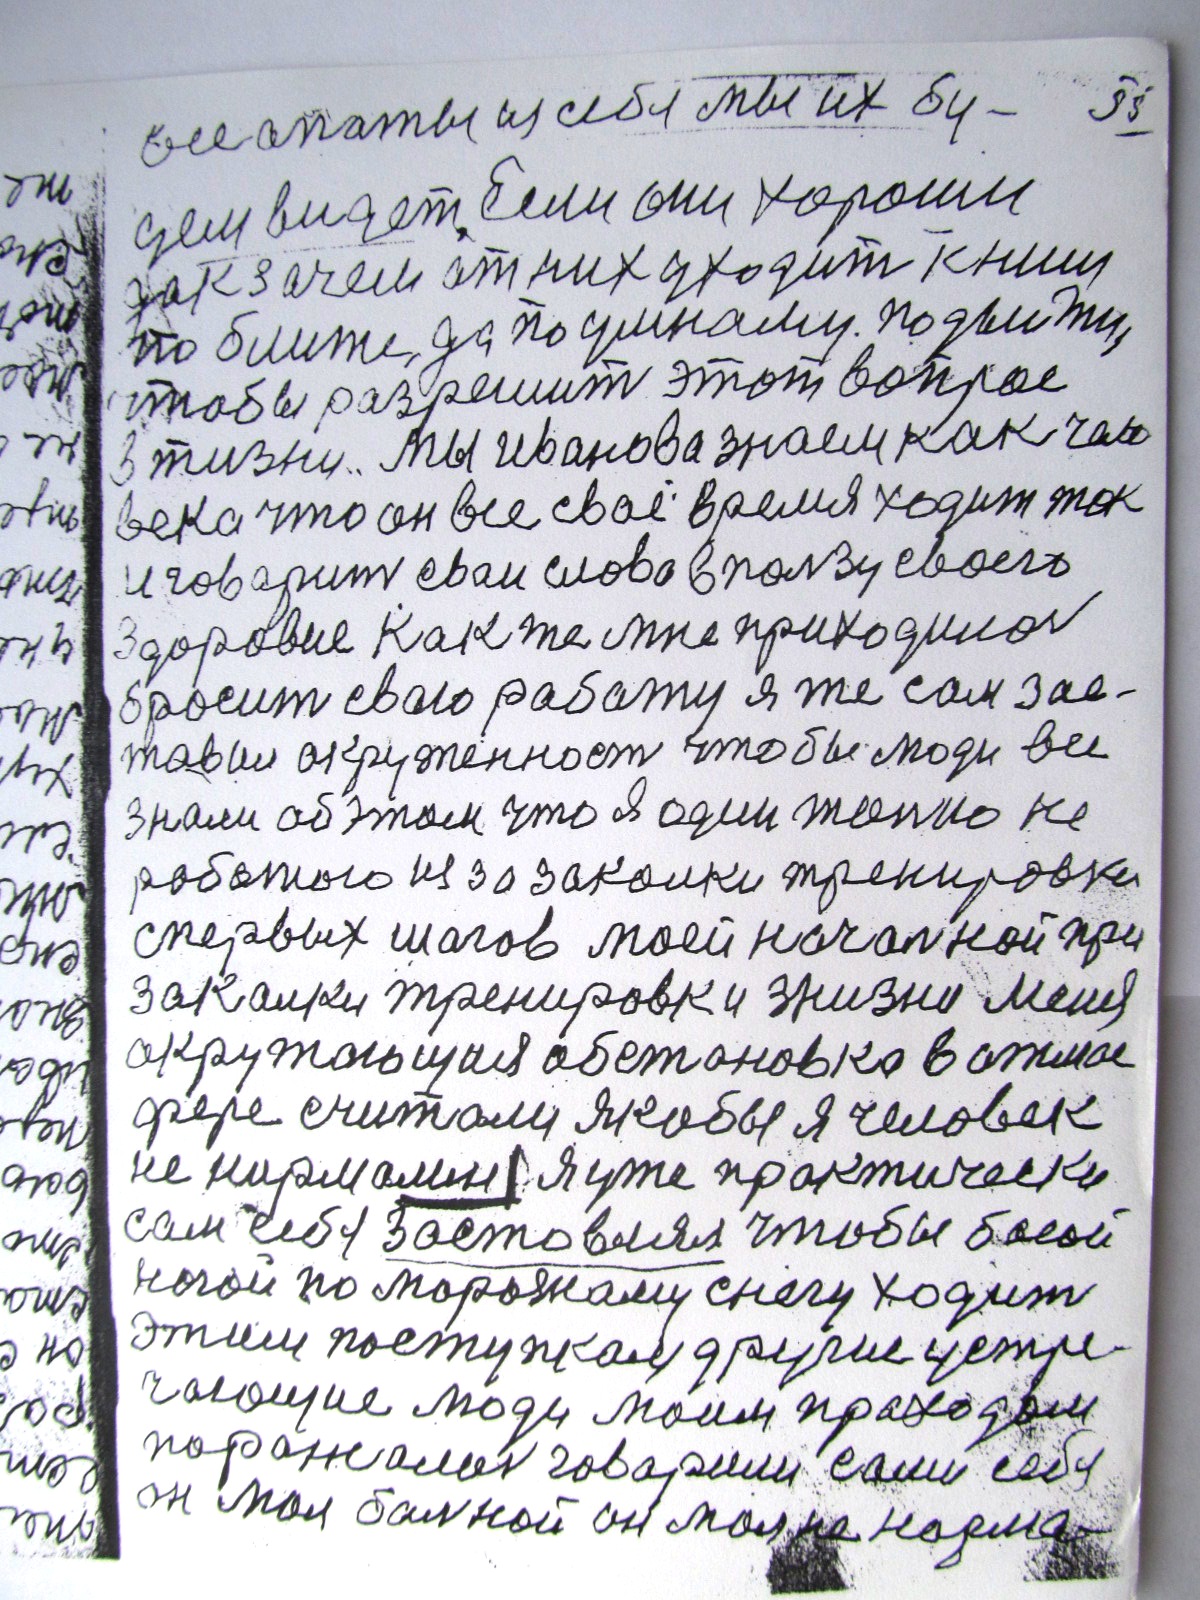 все опаты из себя мы их бу-
33
дем видет. Если они хороши
дак зачем от них уходит к ним
по ближе, да по умнаму. подыйти,
чтобы разрешит этот вопрос
в жизни.. Мы иванова знаем как чало
века что он все своё время ходит так
и говарит сваи слова в ползу своего
здоровие Как же мне приходилос
бросит сваю работу я же сам зас-
тавил окруженност чтобы люди все
знали об этом что я один толко не
работаю из за закалки тренировки
с первых шагов моей началной при
закалки тренировки з жизни меня
окружающия обстановка в отмос
фере считали якобы я человек
не нармалин я уже практически
сам себя заставлял чтобы босой
ногой по морозному снегу ходит
Этим поступкам другие устре-
чающие люди моим праходам
поражалис говарили сами себя
он мол балной он мол не норма-